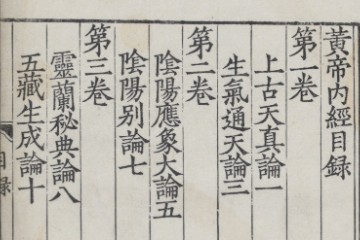 黃帝內經目錄
第一卷
上古天真論一
生氣通天論三
第二卷
陰陽應象大論五
陰陽别論七
第三卷
靈蘭秘典論八
五藏生成論十
目錄